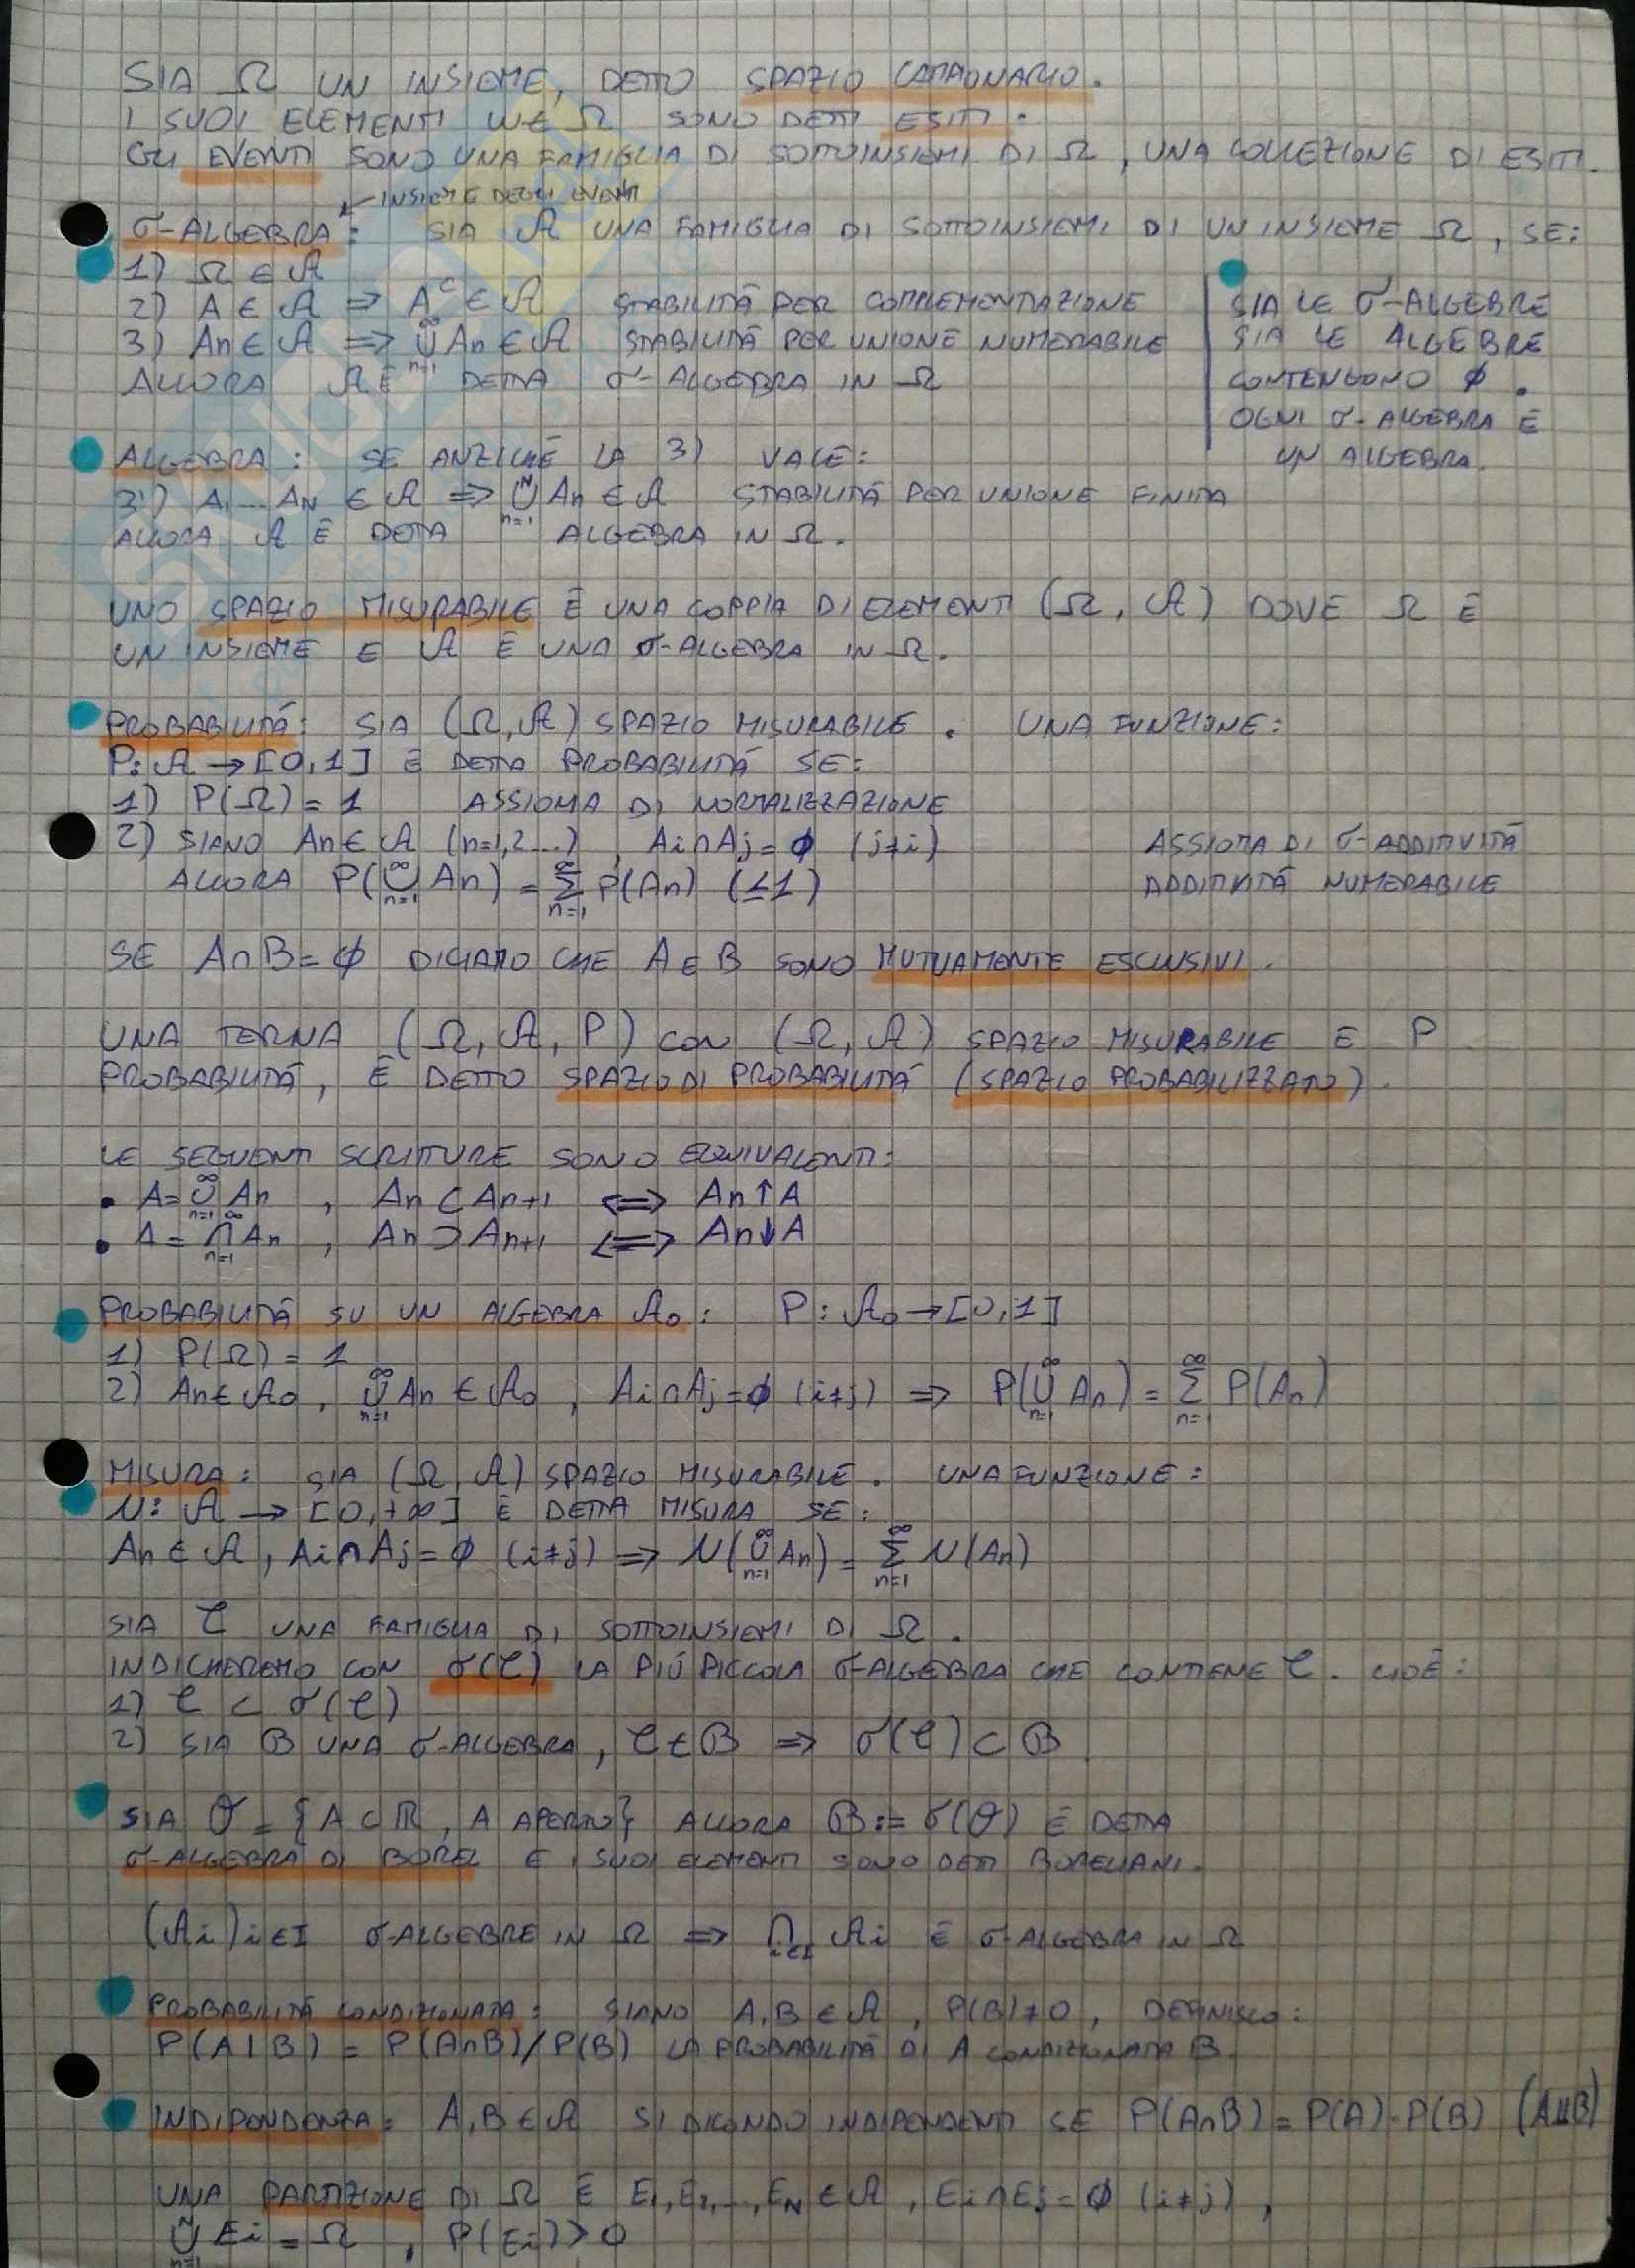 SIA Ω UN INSIEME, DETTO SPAZIO CAMPIONARIO.
I SUOI ELEMENTI ω ∈ Ω SONO DETTI ESITI.
GLI EVENTI SONO UNA FAMIGLIA DI SOTTOINSIEMI DI Ω, UNA COLLEZIONE DI ESITI.
← INSIEME DEGLI EVENTI
σ-ALGEBRA: SIA 𝒜 UNA FAMIGLIA DI SOTTOINSIEMI DI UN INSIEME Ω, SE:
1) Ω ∈ 𝒜
2) A ∈ 𝒜 ⇒ Aᶜ ∈ 𝒜 STABILITÀ PER COMPLEMENTAZIONE
3) An ∈ 𝒜 ⇒ ∞∪n=1 An ∈ 𝒜 STABILITÀ PER UNIONE NUMERABILE
ALLORA 𝒜 È DETTA σ-ALGEBRA IN Ω
SIA LE σ-ALGEBRE
SIA LE ALGEBRE
CONTENGONO ∅.
OGNI σ-ALGEBRA È
UN ALGEBRA.
ALGEBRA: SE ANZICHÉ LA 3) VALE:
3') A1 ... AN ∈ 𝒜 ⇒ N∪n=1 An ∈ 𝒜 STABILITÀ PER UNIONE FINITA
ALLORA 𝒜 È DETTA ALGEBRA IN Ω.
UNO SPAZIO MISURABILE È UNA COPPIA DI ELEMENTI (Ω, 𝒜) DOVE Ω È
UN INSIEME E 𝒜 È UNA σ-ALGEBRA IN Ω.
PROBABILITÀ: SIA (Ω, 𝒜) SPAZIO MISURABILE. UNA FUNZIONE:
P: 𝒜 → [0,1] È DETTA PROBABILITÀ SE:
1) P(Ω) = 1 ASSIOMA DI NORMALIZZAZIONE
2) SIANO An ∈ 𝒜 (n=1,2...), Ai ∩ Aj = ∅ (j≠i) ASSIOMA DI σ-ADDITIVITÀ
ALLORA P(∞∪n=1 An) = ∞Σn=1 P(An) (≤1) ADDITIVITÀ NUMERABILE
SE A∩B = ∅ DICIAMO CHE A E B SONO MUTUAMENTE ESCLUSIVI.
UNA TERNA (Ω, 𝒜, P) CON (Ω, 𝒜) SPAZIO MISURABILE E P
PROBABILITÀ, È DETTO SPAZIO DI PROBABILITÀ (SPAZIO PROBABILIZZATO).
LE SEGUENTI SCRITTURE SONO EQUIVALENTI:
• A = ∞∪n=1 An , An ⊂ An+1 ⟺ An ↑ A
• A = ∞∩n=1 An , An ⊃ An+1 ⟺ An ↓ A
PROBABILITÀ SU UN ALGEBRA 𝒜0: P: 𝒜0 → [0,1]
1) P(Ω) = 1
2) An ∈ 𝒜0, ∞∪n=1 An ∈ 𝒜0, Ai ∩ Aj = ∅ (i≠j) ⇒ P(∞∪n=1 An) = ∞Σn=1 P(An)
MISURA: SIA (Ω, 𝒜) SPAZIO MISURABILE. UNA FUNZIONE:
μ: 𝒜 → [0,+∞] È DETTA MISURA SE:
An ∈ 𝒜, Ai ∩ Aj = ∅ (i≠j) ⇒ μ(∞∪n=1 An) = ∞Σn=1 μ(An)
SIA 𝒞 UNA FAMIGLIA DI SOTTOINSIEMI DI Ω.
INDICHEREMO CON σ(𝒞) LA PIÙ PICCOLA σ-ALGEBRA CHE CONTIENE 𝒞. CIOÈ:
1) 𝒞 ⊂ σ(𝒞)
2) SIA ℬ UNA σ-ALGEBRA, 𝒞 ∈ ℬ ⇒ σ(𝒞) ⊂ ℬ
SIA 𝒪 = {A ⊂ ℝ, A APERTO} ALLORA ℬ := σ(𝒪) È DETTA
σ-ALGEBRA DI BOREL E I SUOI ELEMENTI SONO DETTI BORELIANI.
(𝒜i)i∈I σ-ALGEBRE IN Ω ⇒ ∩i∈I 𝒜i È σ-ALGEBRA IN Ω
PROBABILITÀ CONDIZIONATA: SIANO A,B ∈ 𝒜, P(B)≠0, DEFINISCO:
P(A|B) = P(A∩B)/P(B) LA PROBABILITÀ DI A CONDIZIONATA B.
INDIPENDENZA: A,B ∈ 𝒜 SI DICONO INDIPENDENTI SE P(A∩B) = P(A)·P(B) (A⫫B)
UNA PARTIZIONE DI Ω È E1, E2, ..., EN ∈ 𝒜, Ei ∩ Ej = ∅ (i≠j),
N∪n=1 Ei = Ω , P(Ei) > 0